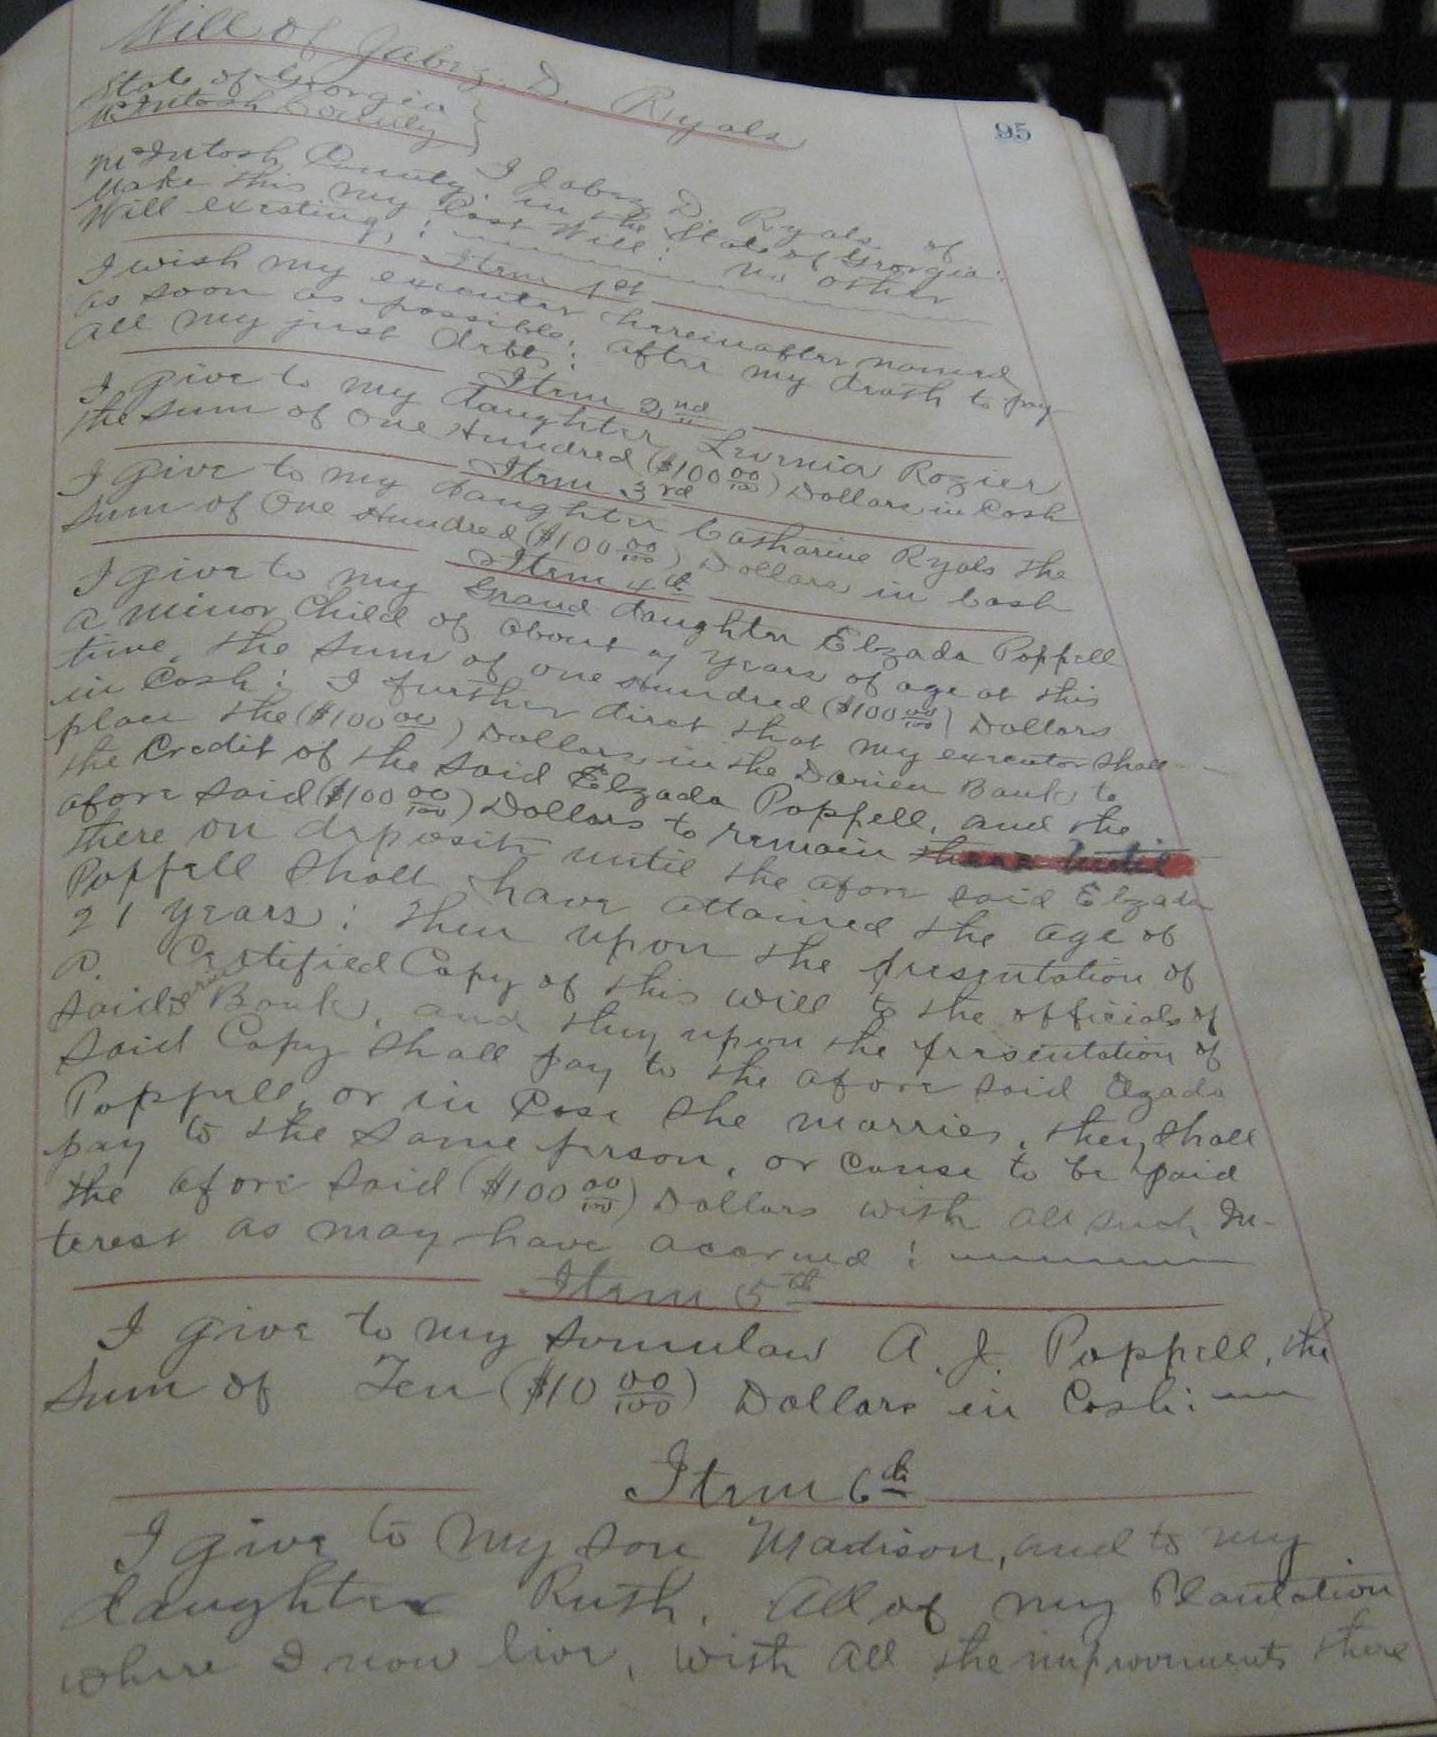 Will of Jabez D. Ryals
95
State of Georgia
McIntosh County
I Jabez D. Ryals, of
McIntosh County: in the State of Georgia:
Make this my last Will: no other
Will existing,:
Item 1st
I wish my executor hereinafter named
as soon as possible, after my death to pay
all my just debts:
Item 2nd
I give to my daughter Rozier
the sum of One Hundred ($100 00/100) Dollars in Cash
Item 3rd
I give to my daughter Catharine Ryals the
sum of One Hundred ($100 00/100) Dollars in Cash
Item 4th
I give to my Grand daughter Elzada Poppell
a minor Child of about years of age at this
time, the sum of one Hundred ($100 00/100) Dollars
in Cash: I further direct that my executor shall
place the ($100 00/100) Dollars, in the Darien Bank, to
the Credit of the said Elzada Poppell, and the
afore said ($100 00/100) Dollars to remain there until
there on deposit until the afore said Elzada
Poppell shall have attained the age of
21 years: then upon the presentation of
a Certified Copy of this will to the officials of
said Bank, and they upon the presentation of
said Copy shall pay to the afore said Elzada
Poppell, or in Case she marries, they shall
pay to the same person, or cause to be paid
the afore said ($100 00/100) Dollars with all such In-
terest as may have accrued:
Item 5th
I give to my soninlaw A. J. Poppell, the
Sum of Ten ($10 00/100) Dollars in Cash:
Item 6th
I give to my son Madison, and to my
daughter Ruth, All of my Plantation
where I now live, with all the improvements there